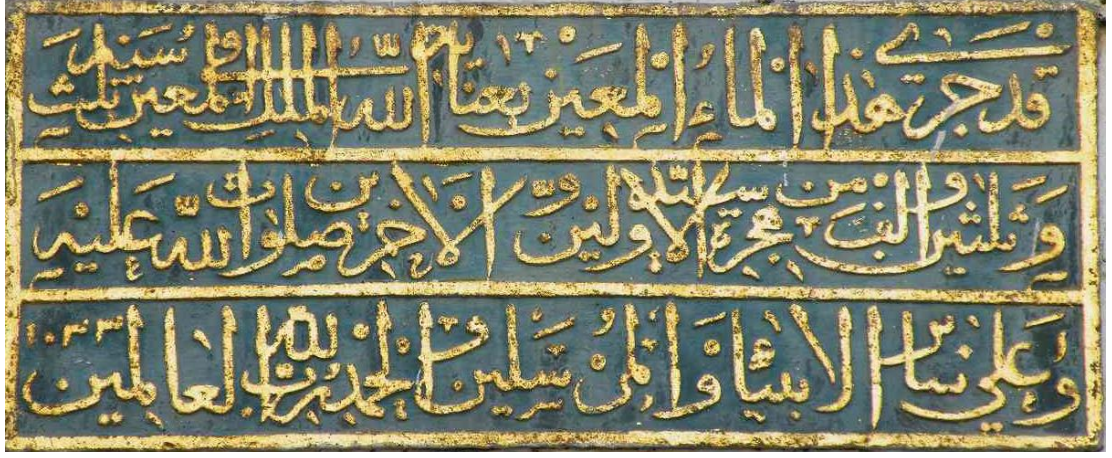 قد جرى هذا الماء المعين بعناية الله الملك المعين سنة ثلث
وثلثين والف من هجرة سيد الاولين والاخرين صلوات الله عليه
وعلى سائر الانبياء والمرسلين والحمد لله رب العالمين ١٠٣٣